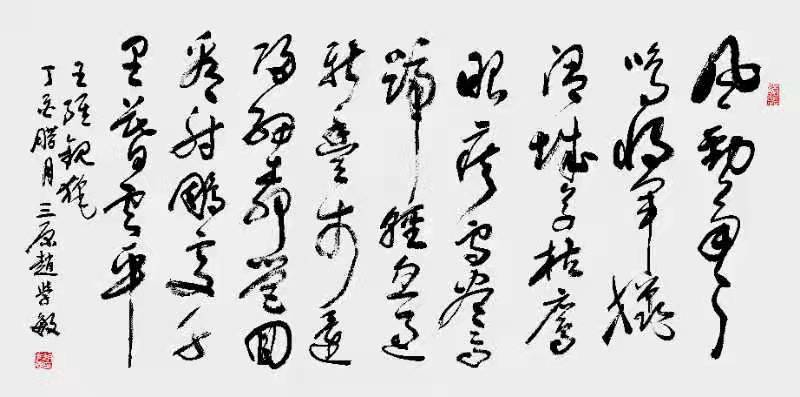 風勁角弓
鳴將軍獵
渭城草枯鷹
眼疾雪盡馬
蹄輕忽過
新豐市還
歸細柳營回
看射鵰處千
里暮雲平
王維觀獵
丁 腊月三原趙學敏